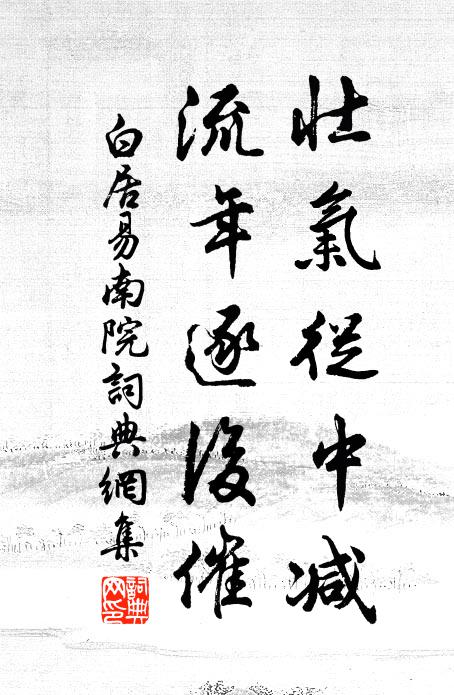 壯氣從中減
流年逐後催
白居易南院詞典網集
詞典網印